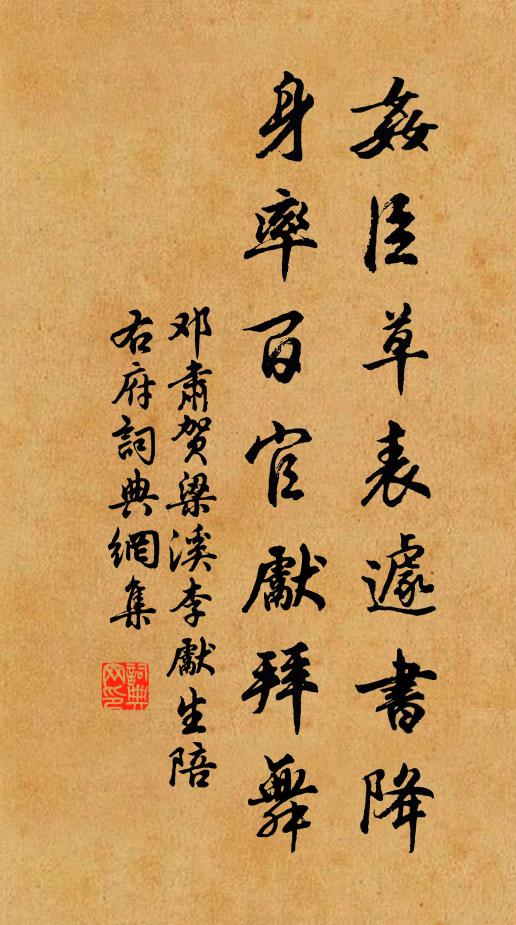 姦臣草表遽書降
身率百官獻拜舞
邓肅贺梁溪李獻生陪
右府詞典網集
詞典
网印